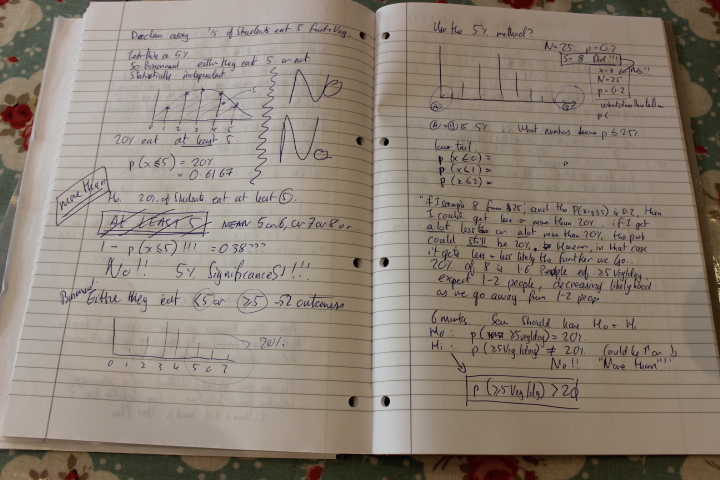 away 1/5 of Students eat 5 fruit+veg.
this a 5%
So Binomial either they eat 5 or not.
Statistically independent
No
No
1 2 3 4 5
20% eat at least 5.
p(x≤5) = 20%
= 0.6167
more than
H₀. 20% of Students eat at least 5.
AT LEAST 5 MEAN 5 or 6, or 7 or 8 or ...
1 - p(x≤5) !!! = 0.38???
No!! 5% Significance!!!
Binomial Either they eat <5 or ≥5 → 2 outcomes
> 20%
0 1 2 3 4 5 6 7
Use the 5% method?
N=25. p=0.2
S=8
No!!
N=25
p=0.2
A
p(
5% What numbers have p≤2.5%.
lower tail
p(x≤0) =
p(x≤1) =
p(x≤2) =
p
"if I sample 8 from 25, and the P(veg≥5) is 0.2, then
I could get less or more than 20%. if I get
a lot less or a lot more than 20%, the
could still be 20%. However, in that case
it gets less + less likely the further we go.
20% of 8 is 1.6 People eat ≥5 veg/day.
expect 1-2 people, decreasing likelyhood
as we go away from 1-2 people
6 marks. You should have H₀ + H₁
H₀: p(≥5veg/day) = 20%
H₁: p(≥5veg/day) ≠ 20% (could be ↑ or ↓
No!! "More than"!!
p(≥5veg/day) > 20